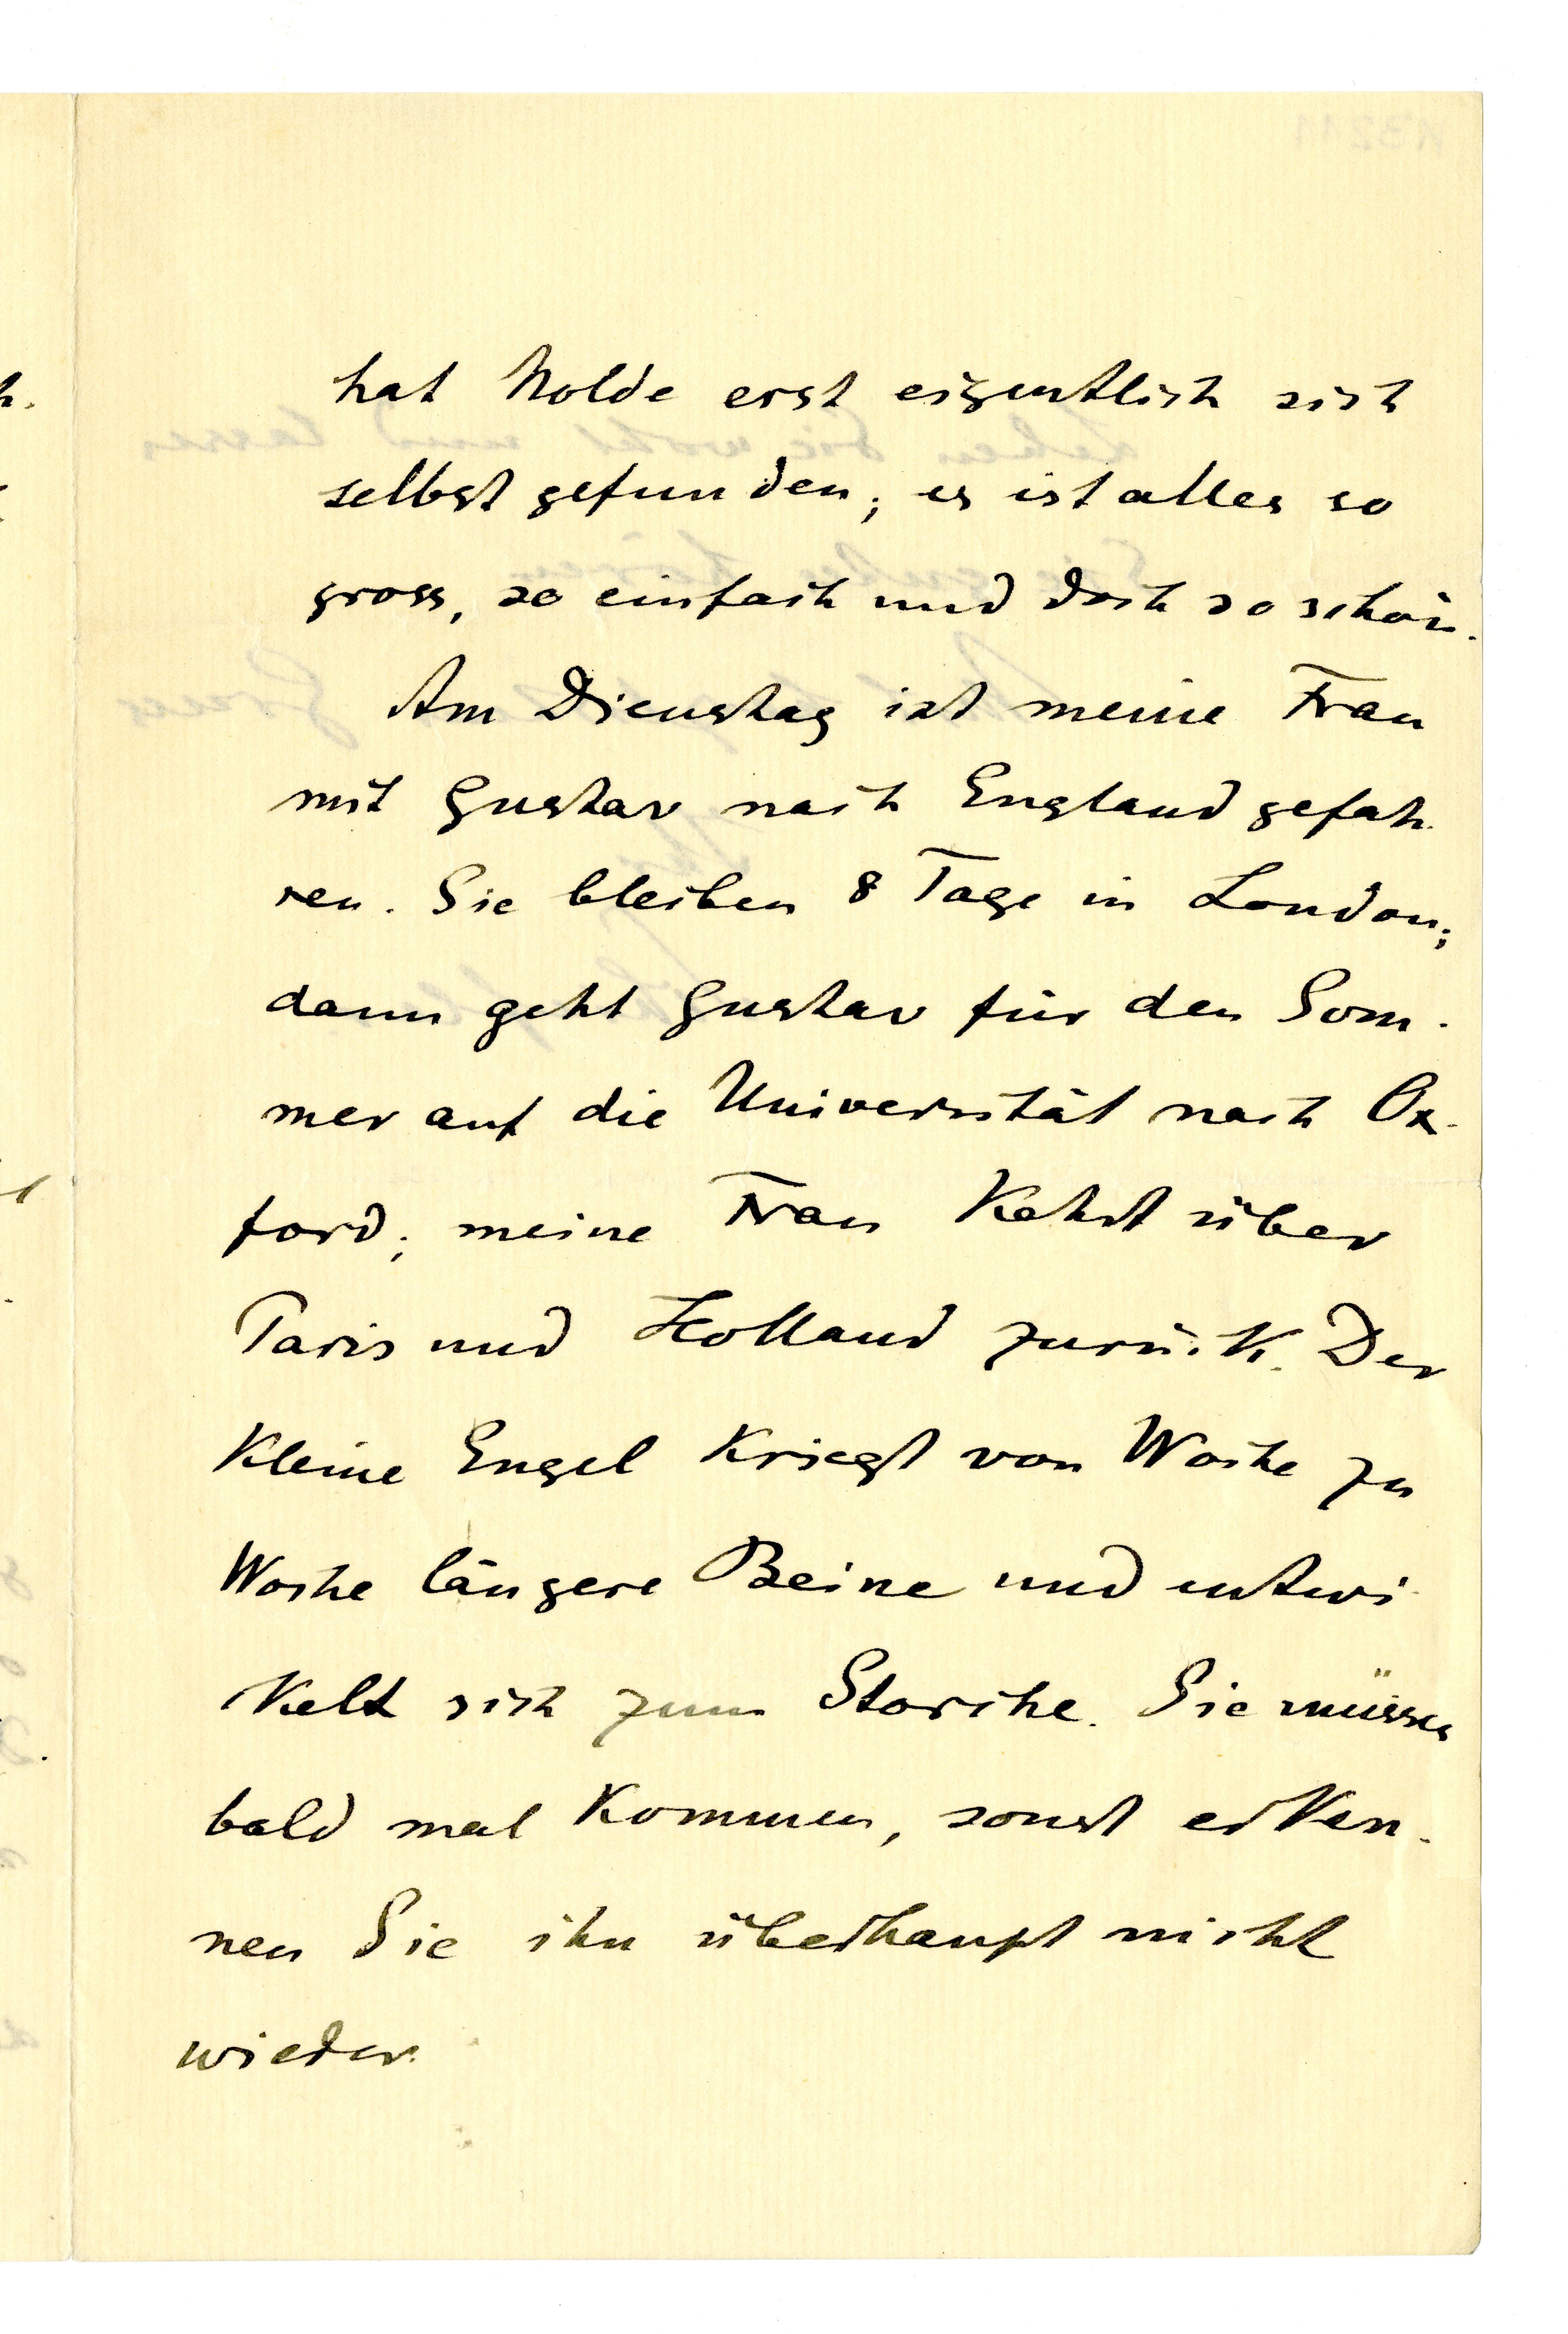 hat Nolde erst eigentlich sich
selbst gefunden; es ist alles so
gross, so einfach und doch so schön.
Am Dienstag ist meine Frau
mit Gustav nach England gefah-
ren. Sie bleiben 8 Tage in London;
dann geht Gustav für den Som-
mer auf die Universität nach Ox-
ford; meine Frau kehrt über
Paris und Holland zurück. Der
kleine Engel kriegt von Woche zu
Woche längere Beine und entwi-
kelt sich zum Storche. Sie müssen
bald mal kommen, sonst erken-
nen Sie ihn überhaupt nicht
wieder.